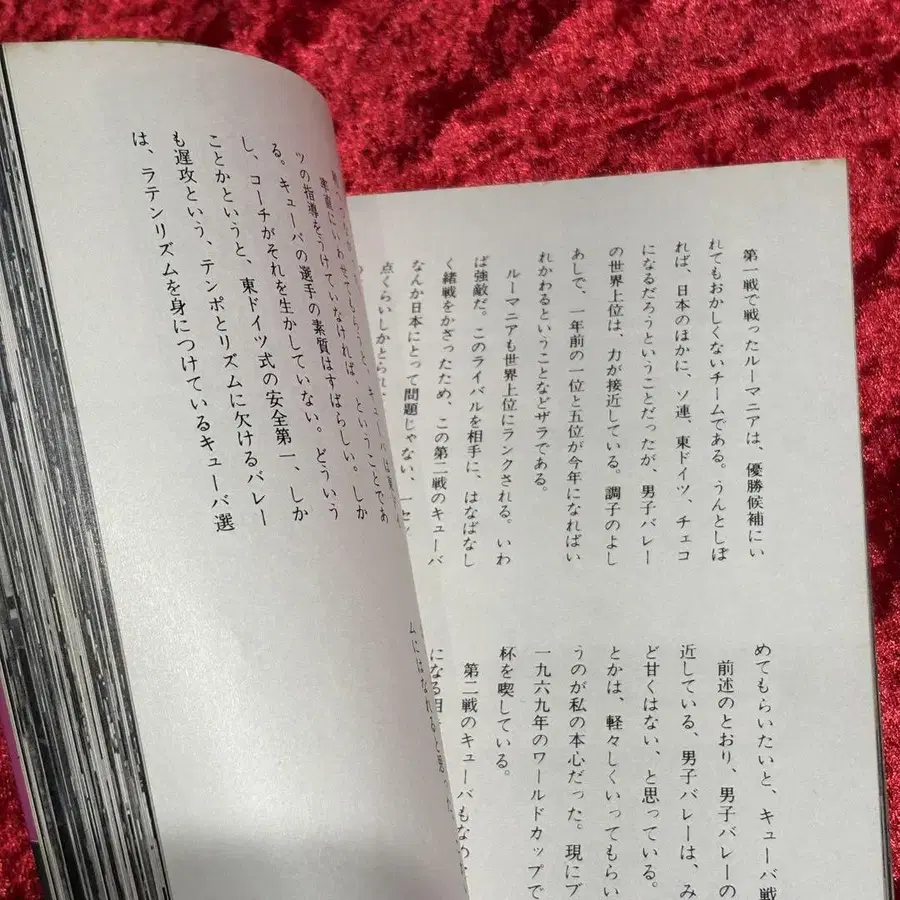 第一戦で戦ったルーマニアは、優勝候補にい
れてもおかしくないチームである。うんとしぼ
れば、日本のほかに、ソ連、東ドイツ、チェコ
になるだろうということだったが、男子バレー
の世界上位は、力が接近している。調子のよし
あしで、一年前の一位と五位が今年になればい
れかわるということなどザラである。
ルーマニアも世界上位にランクされる。いわ
ば強敵だ。このライバルを相手に、はなばなし
く緒戦をかざったため、この第二戦のキューバ
なんか日本にとって問題じゃない、一セッ
点くらいしかとられ
めてもらいたいと、キューバ戦
前述のとおり、男子バレーの
近している、男子バレーは、み
ど甘くはない、と思っている。
とかは、軽々しくいってもらい
うのが私の本心だった。現にブ
一九六九年のワールドカップで
杯を喫している。
第二戦のキューバもなめ
になる相
ムにはなれると思った
率直にいわせてもらうと、キューバは東
ツの指導をうけていなければ、ということであ
る。キューバの選手の素質はすばらしい。しか
し、コーチがそれを生かしていない。どういう
ことかというと、東ドイツ式の安全第一、しか
も遅攻という、テンポとリズムに欠けるバレー
は、ラテンリズムを身につけているキューバ選